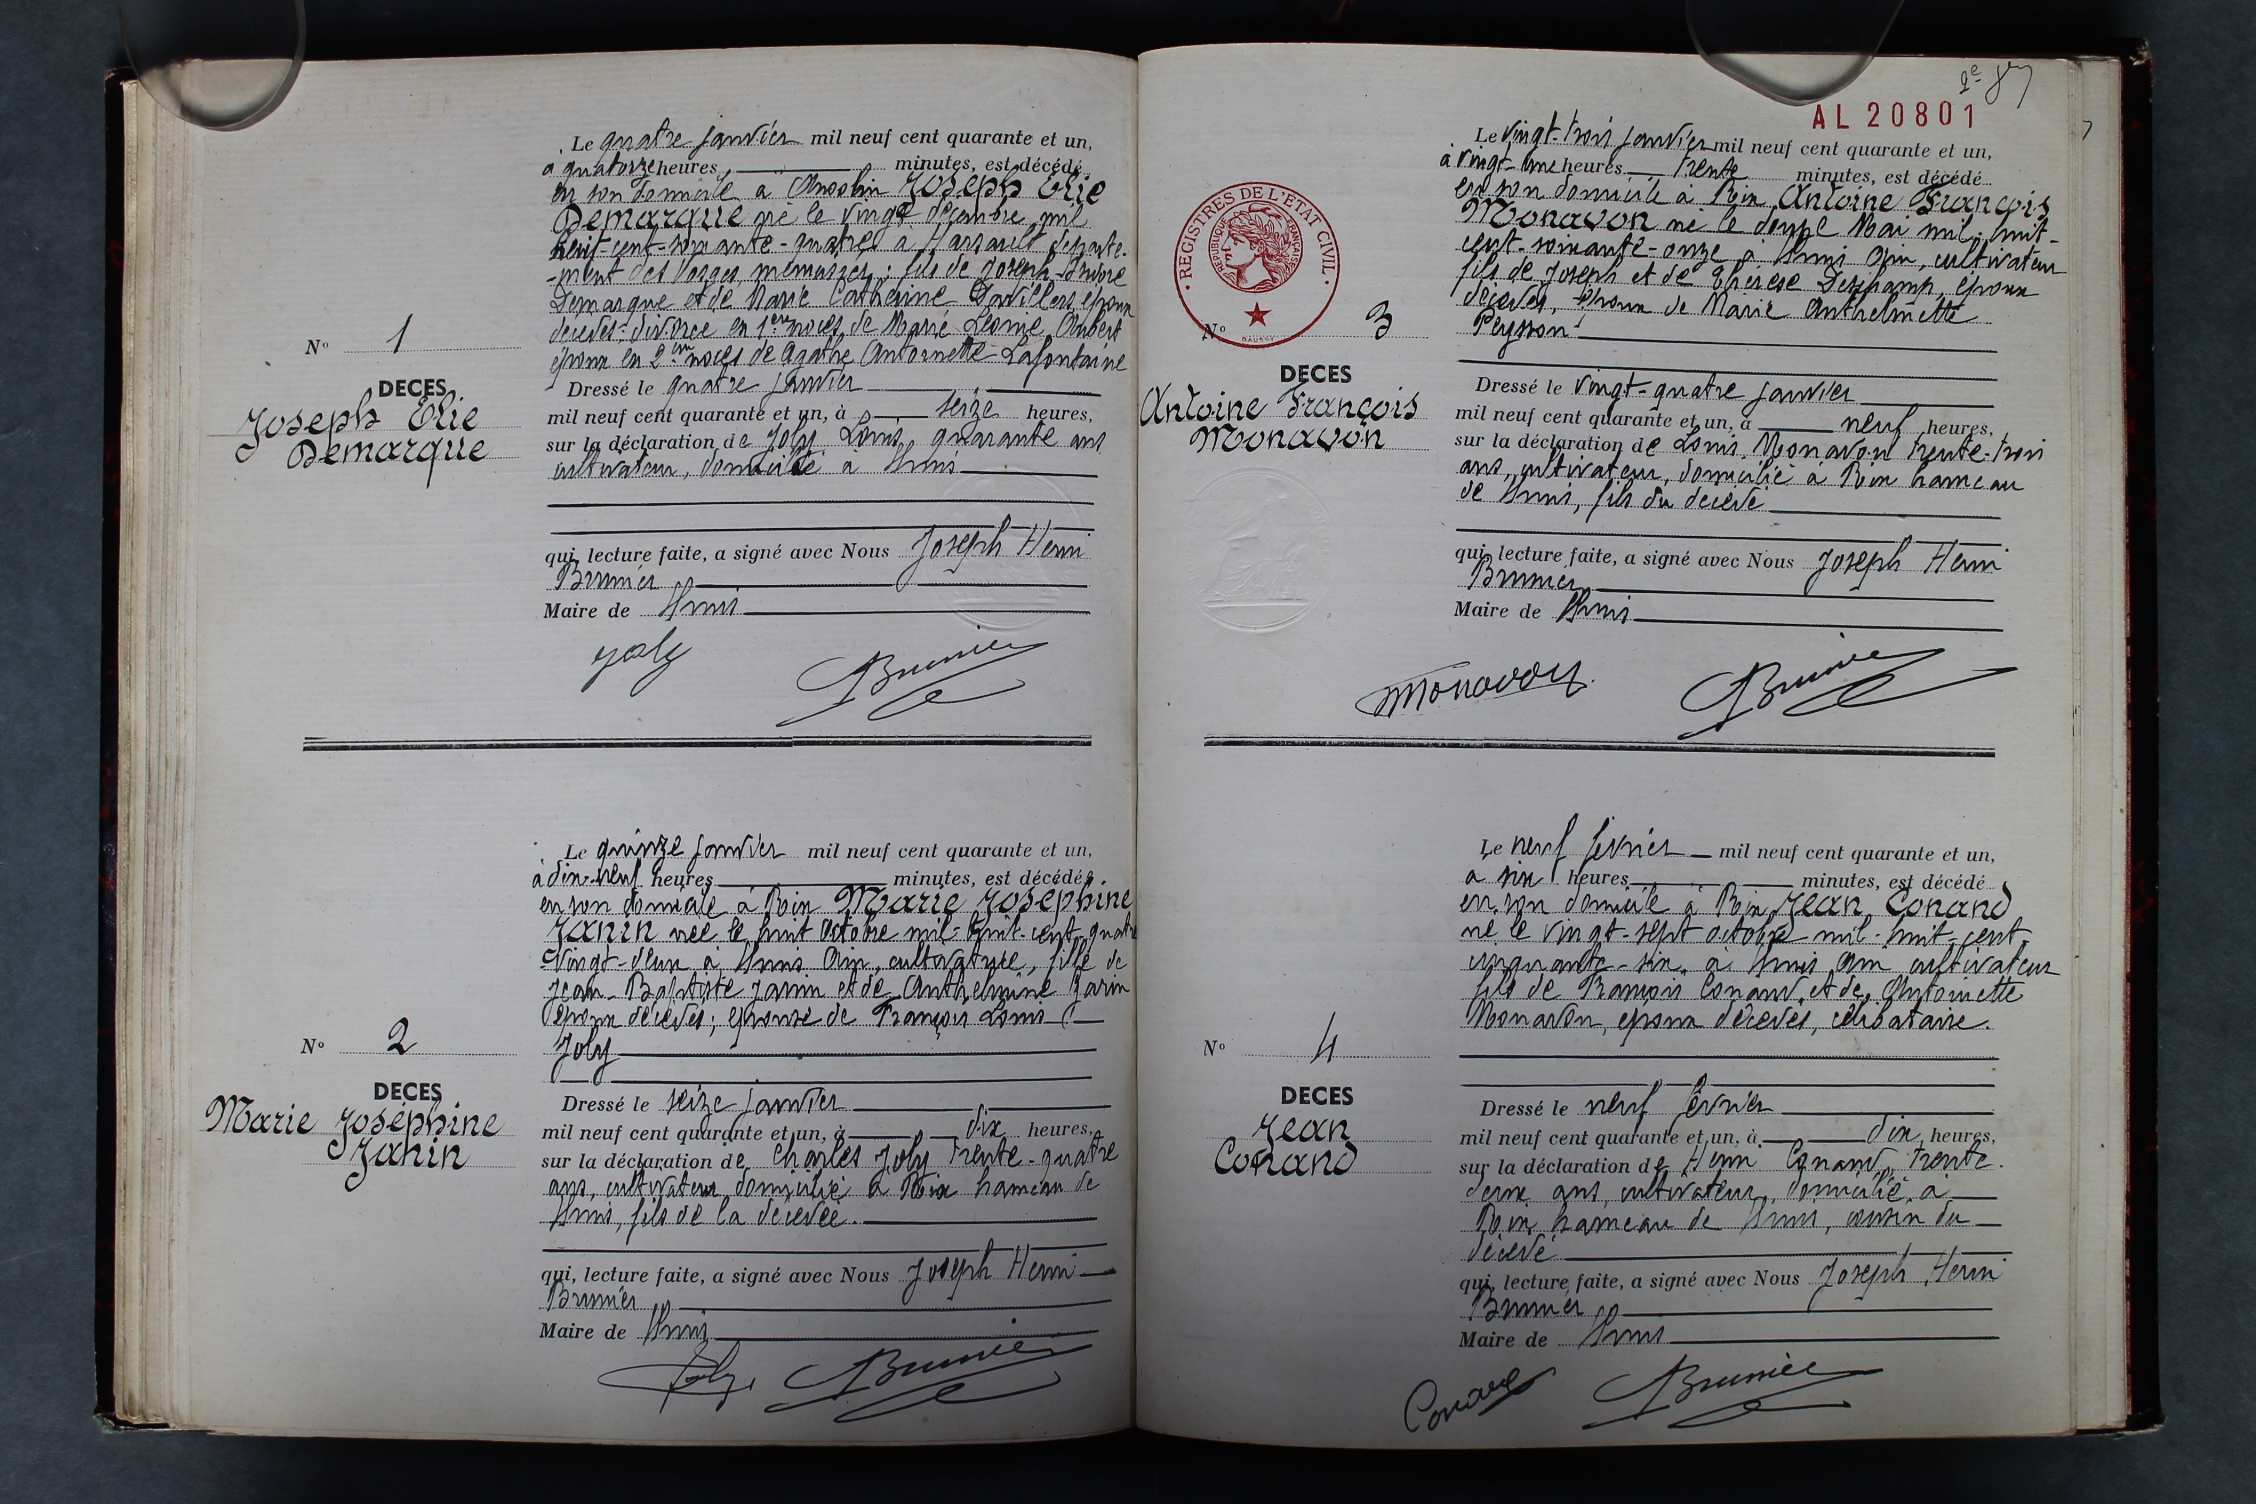 Le quatre janvier mil neuf cent quarante et un,
à quatorze heures minutes, est décédé
en son domicile à Ansolin Joseph Elie
Demarque né le vingt décembre mil
huit-cent-soixante-quatre à Harsault départe-
-ment des Vosges, menuisier; fils de Joseph
Demarque et de Marie Catherine Davillers époux
décédés - divorcé en 1ères noces de Marie Léonie Aubert
époux en 2èm noces de Agathe Antoinette Lafontaine
N° 1
DECES
Joseph Elie
Demarque
Dressé le quatre janvier
mil neuf cent quarante et un, à seize heures,
sur la déclaration de Joly Louis, quarante ans
cultivateur, domicilié à Lhuis
qui, lecture faite, a signé avec Nous Joseph Henri
Brunier
Maire de Lhuis
Joly Brunier
Le quinze janvier mil neuf cent quarante et un,
à dix-neuf heures minutes, est décédée
en son domicile à Rix Marie Joséphine
Janin née le huit octobre mil-huit-cent-quatre
-vingt-deux à Lhuis Ain, cultivatrice, fille de
Jean-Baptiste Janin et de Anthelmine Jarin
époux décédés; épouse de François Louis
Joly
N° 2
DECES
Marie Joséphine
Janin
Dressé le seize janvier
mil neuf cent quarante et un, à dix heures,
sur la déclaration de Charles Joly trente-quatre
ans, cultivateur domicilié à Rix hameau de
Lhuis, fils de la décédée.
qui, lecture faite, a signé avec Nous Joseph Henri
Brunier
Maire de Lhuis
Joly Brunier
2e
AL 20801
Le vingt-trois janvier mil neuf cent quarante et un,
à vingt-une heures trente minutes, est décédé
en son domicile à Rix Antoine François
Monavon né le douze Mai mil-huit-
cent-soixante-onze à Lhuis Ain, cultivateur
fils de Joseph et de Thérèse Deschamp, époux
décédés, époux de Marie Anthelmette
Peysson
REGISTRES DE L'ETAT CIVIL
REPUBLIQUE FRANÇAISE
N° 3
DECES
Antoine François
Monavon
Dressé le vingt-quatre janvier
mil neuf cent quarante et un, à neuf heures,
sur la déclaration de Louis Monavon trente-trois
ans, cultivateur, domicilié à Rix hameau
de Lhuis, fils du décédé
qui, lecture faite, a signé avec Nous Joseph Henri
Brunier
Maire de Lhuis
Monavon Brunier
Le neuf février mil neuf cent quarante et un,
à six heures minutes, est décédé
en son domicile à Rix Jean Conand
né le vingt-sept octobre mil-huit-cent
cinquante-six à Lhuis Ain cultivateur
fils de François Conand et de Antoinette
Monavon, époux décédés, célibataire.
N° 4
DECES
Jean
Conand
Dressé le neuf février
mil neuf cent quarante et un, à dix heures,
sur la déclaration de Henri Conand, trente-
deux ans, cultivateur, domicilié à
Rix hameau de Lhuis, cousin du
décédé
qui, lecture faite, a signé avec Nous Joseph Henri
Brunier
Maire de Lhuis
Conand Brunier